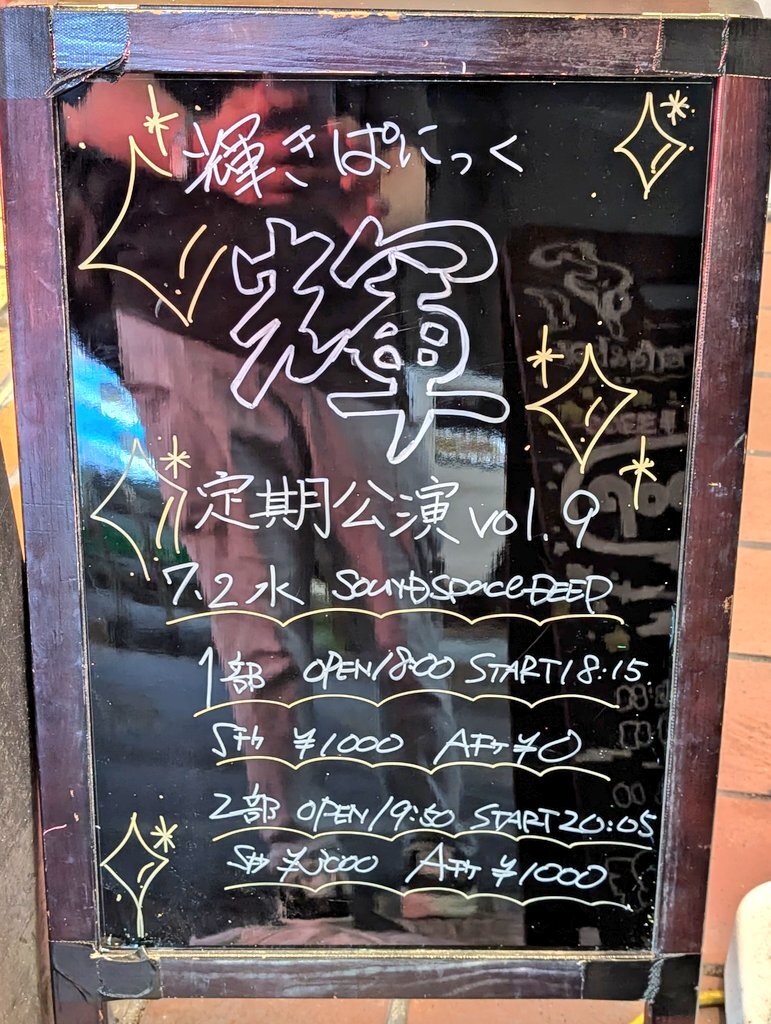 輝きぱにっく
輝
定期公演 vol.9
7.2水 SOUNDSPACEDEEP
1部 OPEN18:00 START18:15
Sチケ ¥1000 Aチケ ¥0
2部 OPEN19:50 START20:05
Sチケ Aチケ ¥1000